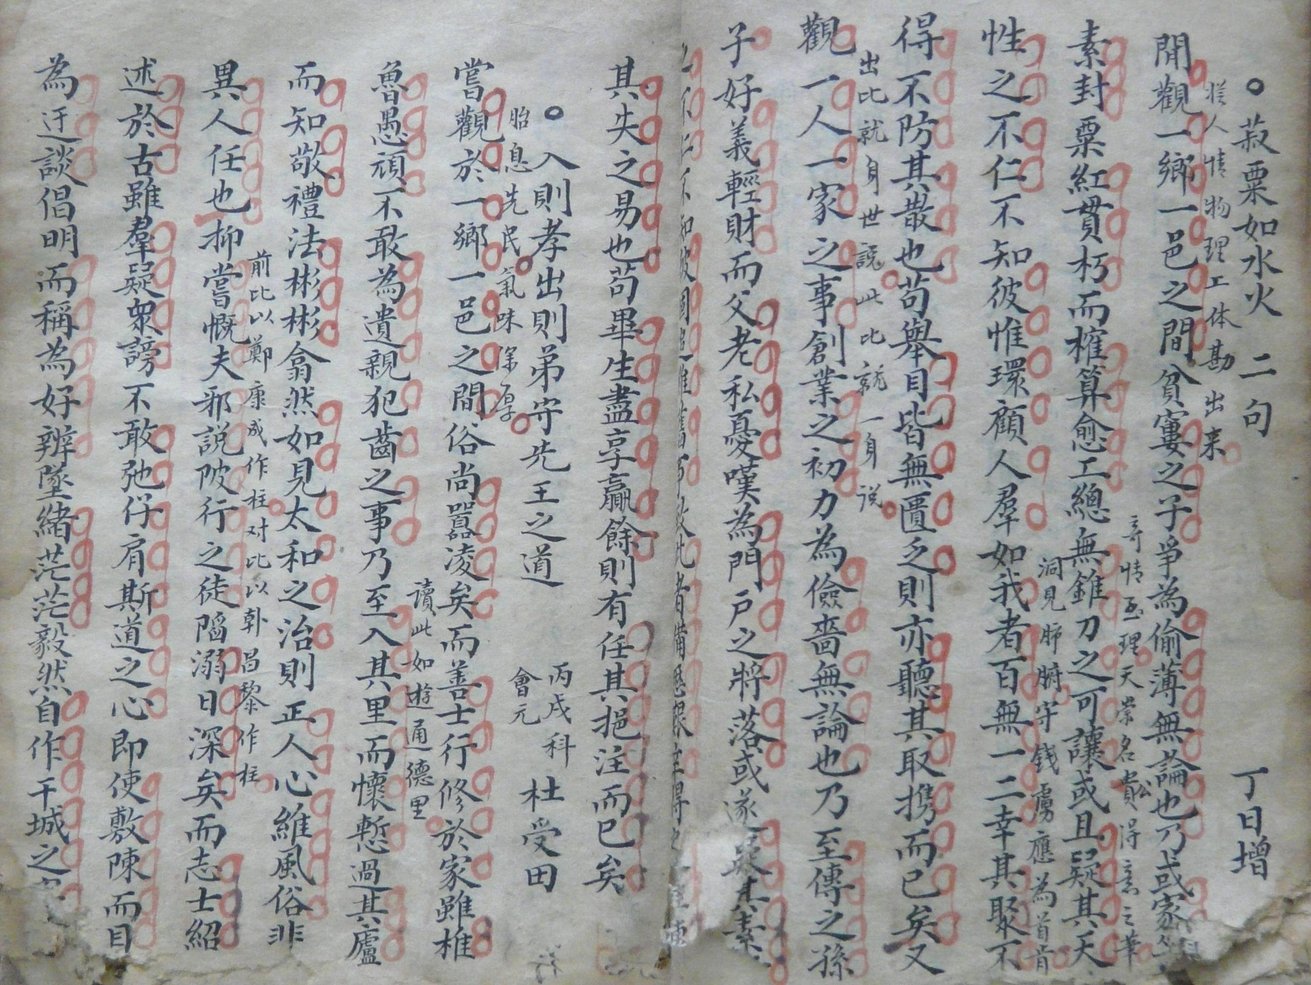 菽粟如水火 二句 丁日增
從人情物理工体勘出来
閒觀一鄉一邑之間貧窶之子爭為偷薄無論也乃或家
奇情至理天棠名貴得意之華
素封粟紅貫朽而榷算愈工總無錐刀之可讓或且疑其天
洞見肺腑守錢虜應為首肯
性之不仁不知彼惟環顧人羣如我者百無一二幸其聚不
得不防其散也苟舉目皆無匱乏則亦聽其取携而已矣又
出比就身世說此比就一身说
觀一人一家之事創業之初力為儉嗇無論也乃至傳之孫
子好義輕財而父老私憂嘆為門戶之將落或遂疑其素
其失之易也苟畢生盡享贏餘則有任其挹注而已矣
入則孝出則弟守先王之道 丙戌科會元 杜受田
胎息先民氣味深厚
嘗觀於一鄉一邑之間俗尚囂凌矣而善士行修於家雖椎
讀此如遊通德里
魯愚頑不敢為遺親犯齒之事乃至入其里而懷慙過其廬
而知敬禮法彬彬翕然如見太和之治則正人心維風俗非
前比以鄭康成作柱对比以韩昌黎作柱
異人任也抑嘗慨夫邪說陂行之徒陷溺日深矣而志士紹
述於古雖羣疑眾謗不敢弛仔肩斯道之心即使敷陳而目
為迂談倡明而稱為好辨墜緒茫茫毅然自作干城之